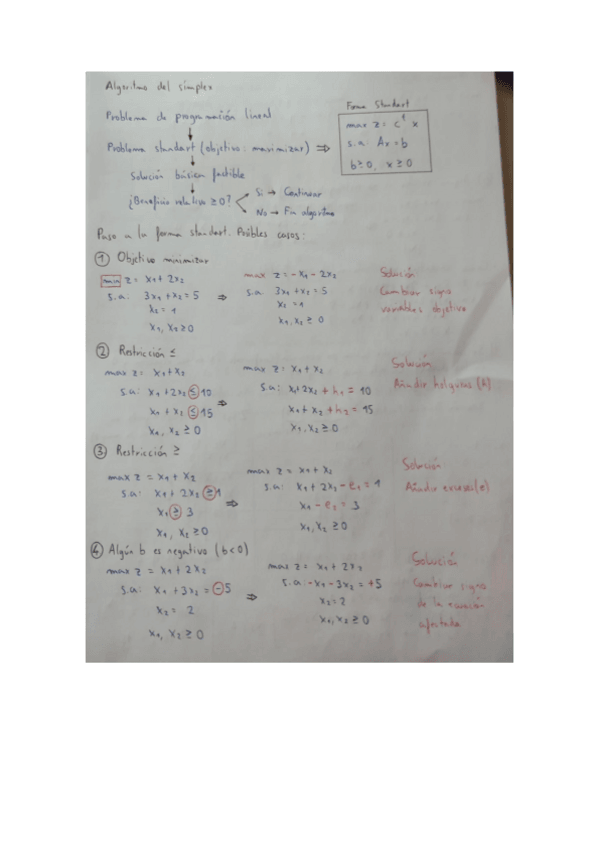 Algoritmo del simplex
Problema de programación lineal
Problema standart (objetivo: maximizar) ⇒
Forma standart
max z = cᵗ x
s.a: Ax = b
b ≥ 0, x ≥ 0
Solución básica factible
¿Beneficio relativo ≥ 0?
Si → Continuar
No → Fin algoritmo
Paso a la forma standart. Posibles casos:
① Objetivo minimizar
min z = x₁ + 2x₂
s.a: 3x₁ + x₂ = 5
x₂ = 1
x₁, x₂ ≥ 0
⇒
max z = -x₁ - 2x₂
s.a: 3x₁ + x₂ = 5
x₂ = 1
x₁, x₂ ≥ 0
Solución
Cambiar signo
variables objetivo
② Restricción ≤
max z = x₁ + x₂
s.a: x₁ + 2x₂ ≤ 10
x₁ + x₂ ≤ 15
x₁, x₂ ≥ 0
⇒
max z = x₁ + x₂
s.a: x₁ + 2x₂ + h₁ = 10
x₁ + x₂ + h₂ = 15
x₁, x₂ ≥ 0
Solución
Añadir holguras (h)
③ Restricción ≥
max z = x₁ + x₂
s.a: x₁ + 2x₂ ≥ 1
x₁ ≥ 3
x₁, x₂ ≥ 0
⇒
max z = x₁ + x₂
s.a: x₁ + 2x₂ - e₁ = 1
x₁ - e₂ = 3
x₁, x₂ ≥ 0
Solución
Añadir excesos (e)
④ Algún b es negativo (b < 0)
max z = x₁ + 2x₂
s.a: x₁ + 3x₂ = -5
x₂ = 2
x₁, x₂ ≥ 0
⇒
max z = x₁ + 2x₂
s.a: -x₁ - 3x₂ = +5
x₂ = 2
x₁, x₂ ≥ 0
Solución
Cambiar signo
de la ecuación
afectada